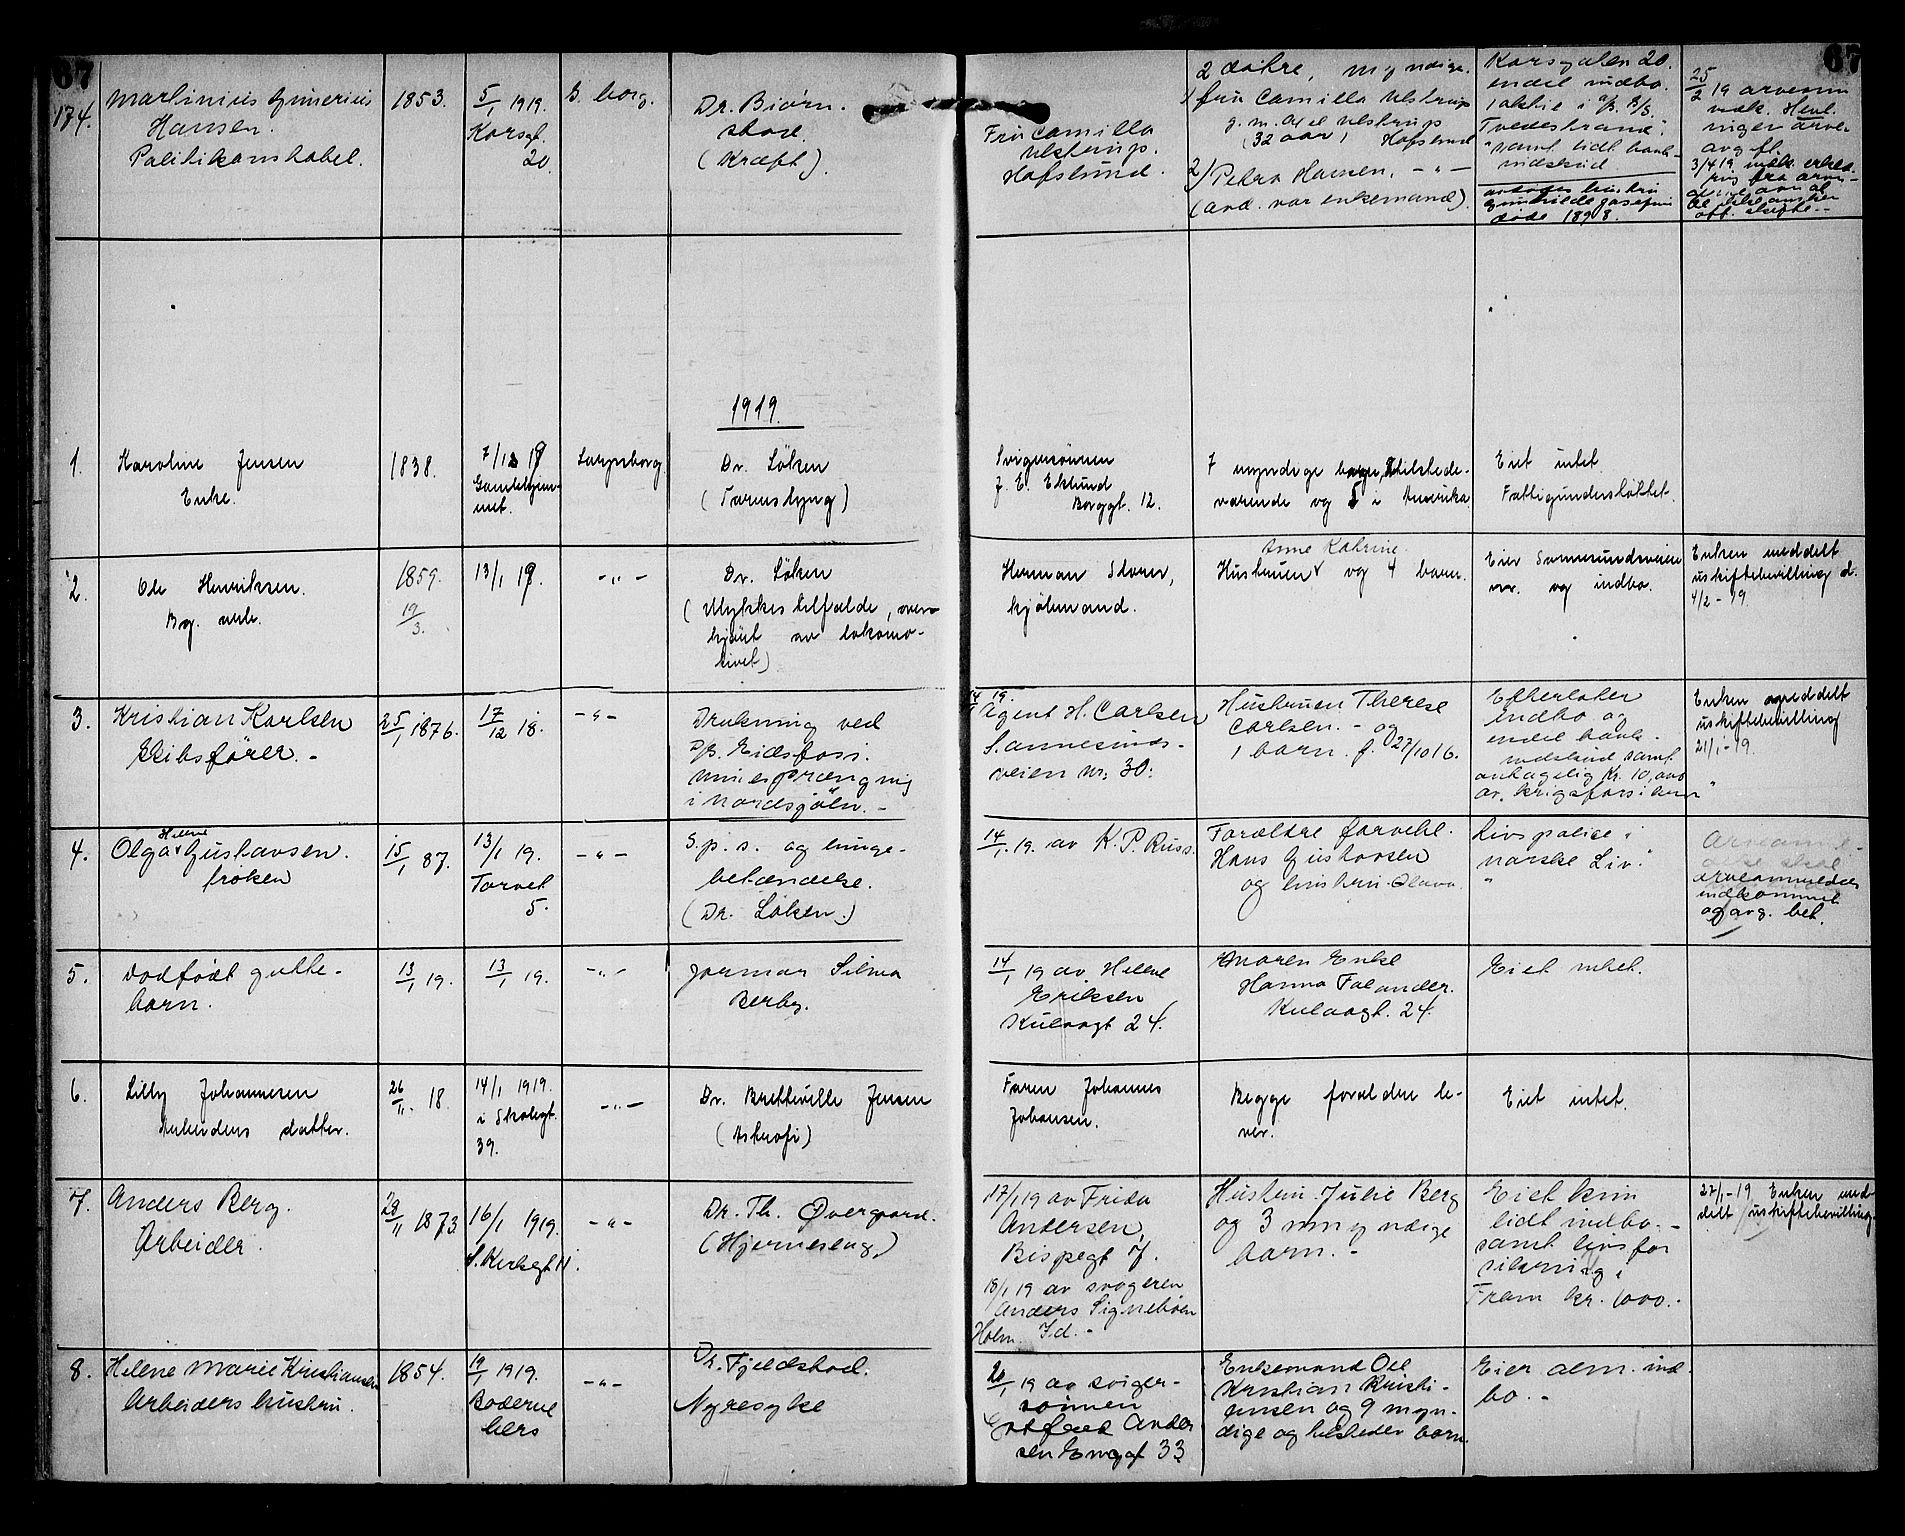 67
67
174.
Martinius Gunerius
Hansen.
Politikonstabel.
1853.
5/1 1919.
Korsgt.
20.
S. borg.
Dr. Bjørn-
stad.
(Kræft).
Fru Camilla
Ulstrup.
Hafslund.
2 døtre, myndige.
1/ fru Camilla Ulstrup
g. m. Ulstrup
(32 aar) Hafslund
2/ Petra Hansen, - " -
(avd. var enkemand).
Korsgaten 20.
endel indbo.
1 aktie i
Tvedestrand
samt lidt bank-
indskud
avdødes hustru
død 1898.
25/2 19
3/4 19
off. skifte. -
1919.
1.
Karoline Jensen
Enke.
1838.
7/1 19
Gamlehjem-
met.
Sarpsborg.
Dr. Løken
(Tarmslyng)
Svigersønnen
J. E. Eklund
Borggt. 12.
7 myndige børn, tilstede-
værende og i Amerika
Eiet intet.
Fattigunderstøttet.
2.
Ole Henriksen.
1859.
19/3.
13/1 19.
- " -
Dr. Løken
(Ulykkestilfælde, over-
kjørt av lokomo-
tivet)
Herman Storer,
kjøbmand.
Anne Katrine.
Hustruen og 4 barn.
Eier Sannesundsveien
nr. og indbo.
Enken meddelt
uskiftebevilling d.
4/2 - 19.
3.
Kristian Karlsen
Skibsfører. -
25/1 1876.
17/12 18.
- " -
Drukning ved
Eidsfoss.
minesprængning
i Nordsjøen. -
14/1 19.
Agent H. Carlsen
Sannesunds-
veien nr. 30.
Hustruen Therese
Carlsen. - og
1 barn. f. 27/10 16.
Efterlater
indbo og
endel bank-
indskud samt
antagelig kr. 10,000
av. krigsforsikring
Enken meddelt
uskiftebevilling
21/1 - 19.
4.
Helene
Olga Gustavsen.
frøken
15/1 87.
13/1 19.
Torvet
5.
- " -
S. p. s. og lunge-
betændelse.
(Dr. Løken.)
14/1. 19. av K. P. Russ.
Forældre
Hans Gustavsen
og hustru Olava.
Livspolice i
"norske Liv."
arveanmeldelse
indkommet
og avg. bet.
5.
Dødfødt gutte-
barn.
13/1 19.
13/1 19.
- " -
Jormor Silma
Berby.
14/1 19 av Helene
Eriksen
Kulaasgt 24.
Moren Enke
Hanna Falander.
Kulaasgt. 24.
Eiet intet.
6.
Lilly Johannesen
Arbeiders datter.
26/11. 18.
14/1 1919.
i Skolegt.
39.
- " -
Dr. Bretteville Jensen
(Astrofi)
Faren Johannes
Johansen.
Begge forældre le-
ver.
Eiet intet.
7.
Anders Berg.
Arbeider.
28/11 1873.
16/1 1919.
S. Kirkegt 11.
- " -
Dr. Th. Øvergaard.
(Hjerneslag)
17/1 19 av Frida
Andersen,
Bispegt 7.
18/1 19 av svogeren
Anders Signebøen
Holm. Id. -
Hustru Julie Berg
og 3 umyndige
barn. -
Eiet kun
lidt indbo. -
samt livsfor
sikring i
Fram kr. 1000. -
27/1 - 19 Enken med-
delt uskiftebevilling.
8.
Helene Marie Kristiansen
Arbeiders hustru.
1854.
19/1 1919.
Boderne
hers
- " -
Dr. Fjeldstad.
Nyresyke
20/1 19 av sviger-
sønnen
Ander
sen Enggt 33
Enkemand Ole
Kristian Kristi-
ansen og 9 myn-
dige og tilsteder barn.
Eier alm. ind
bo. -